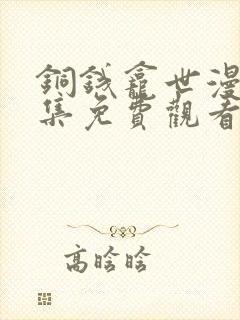 銅錢龕世漫
集免費觀看
高晗晗